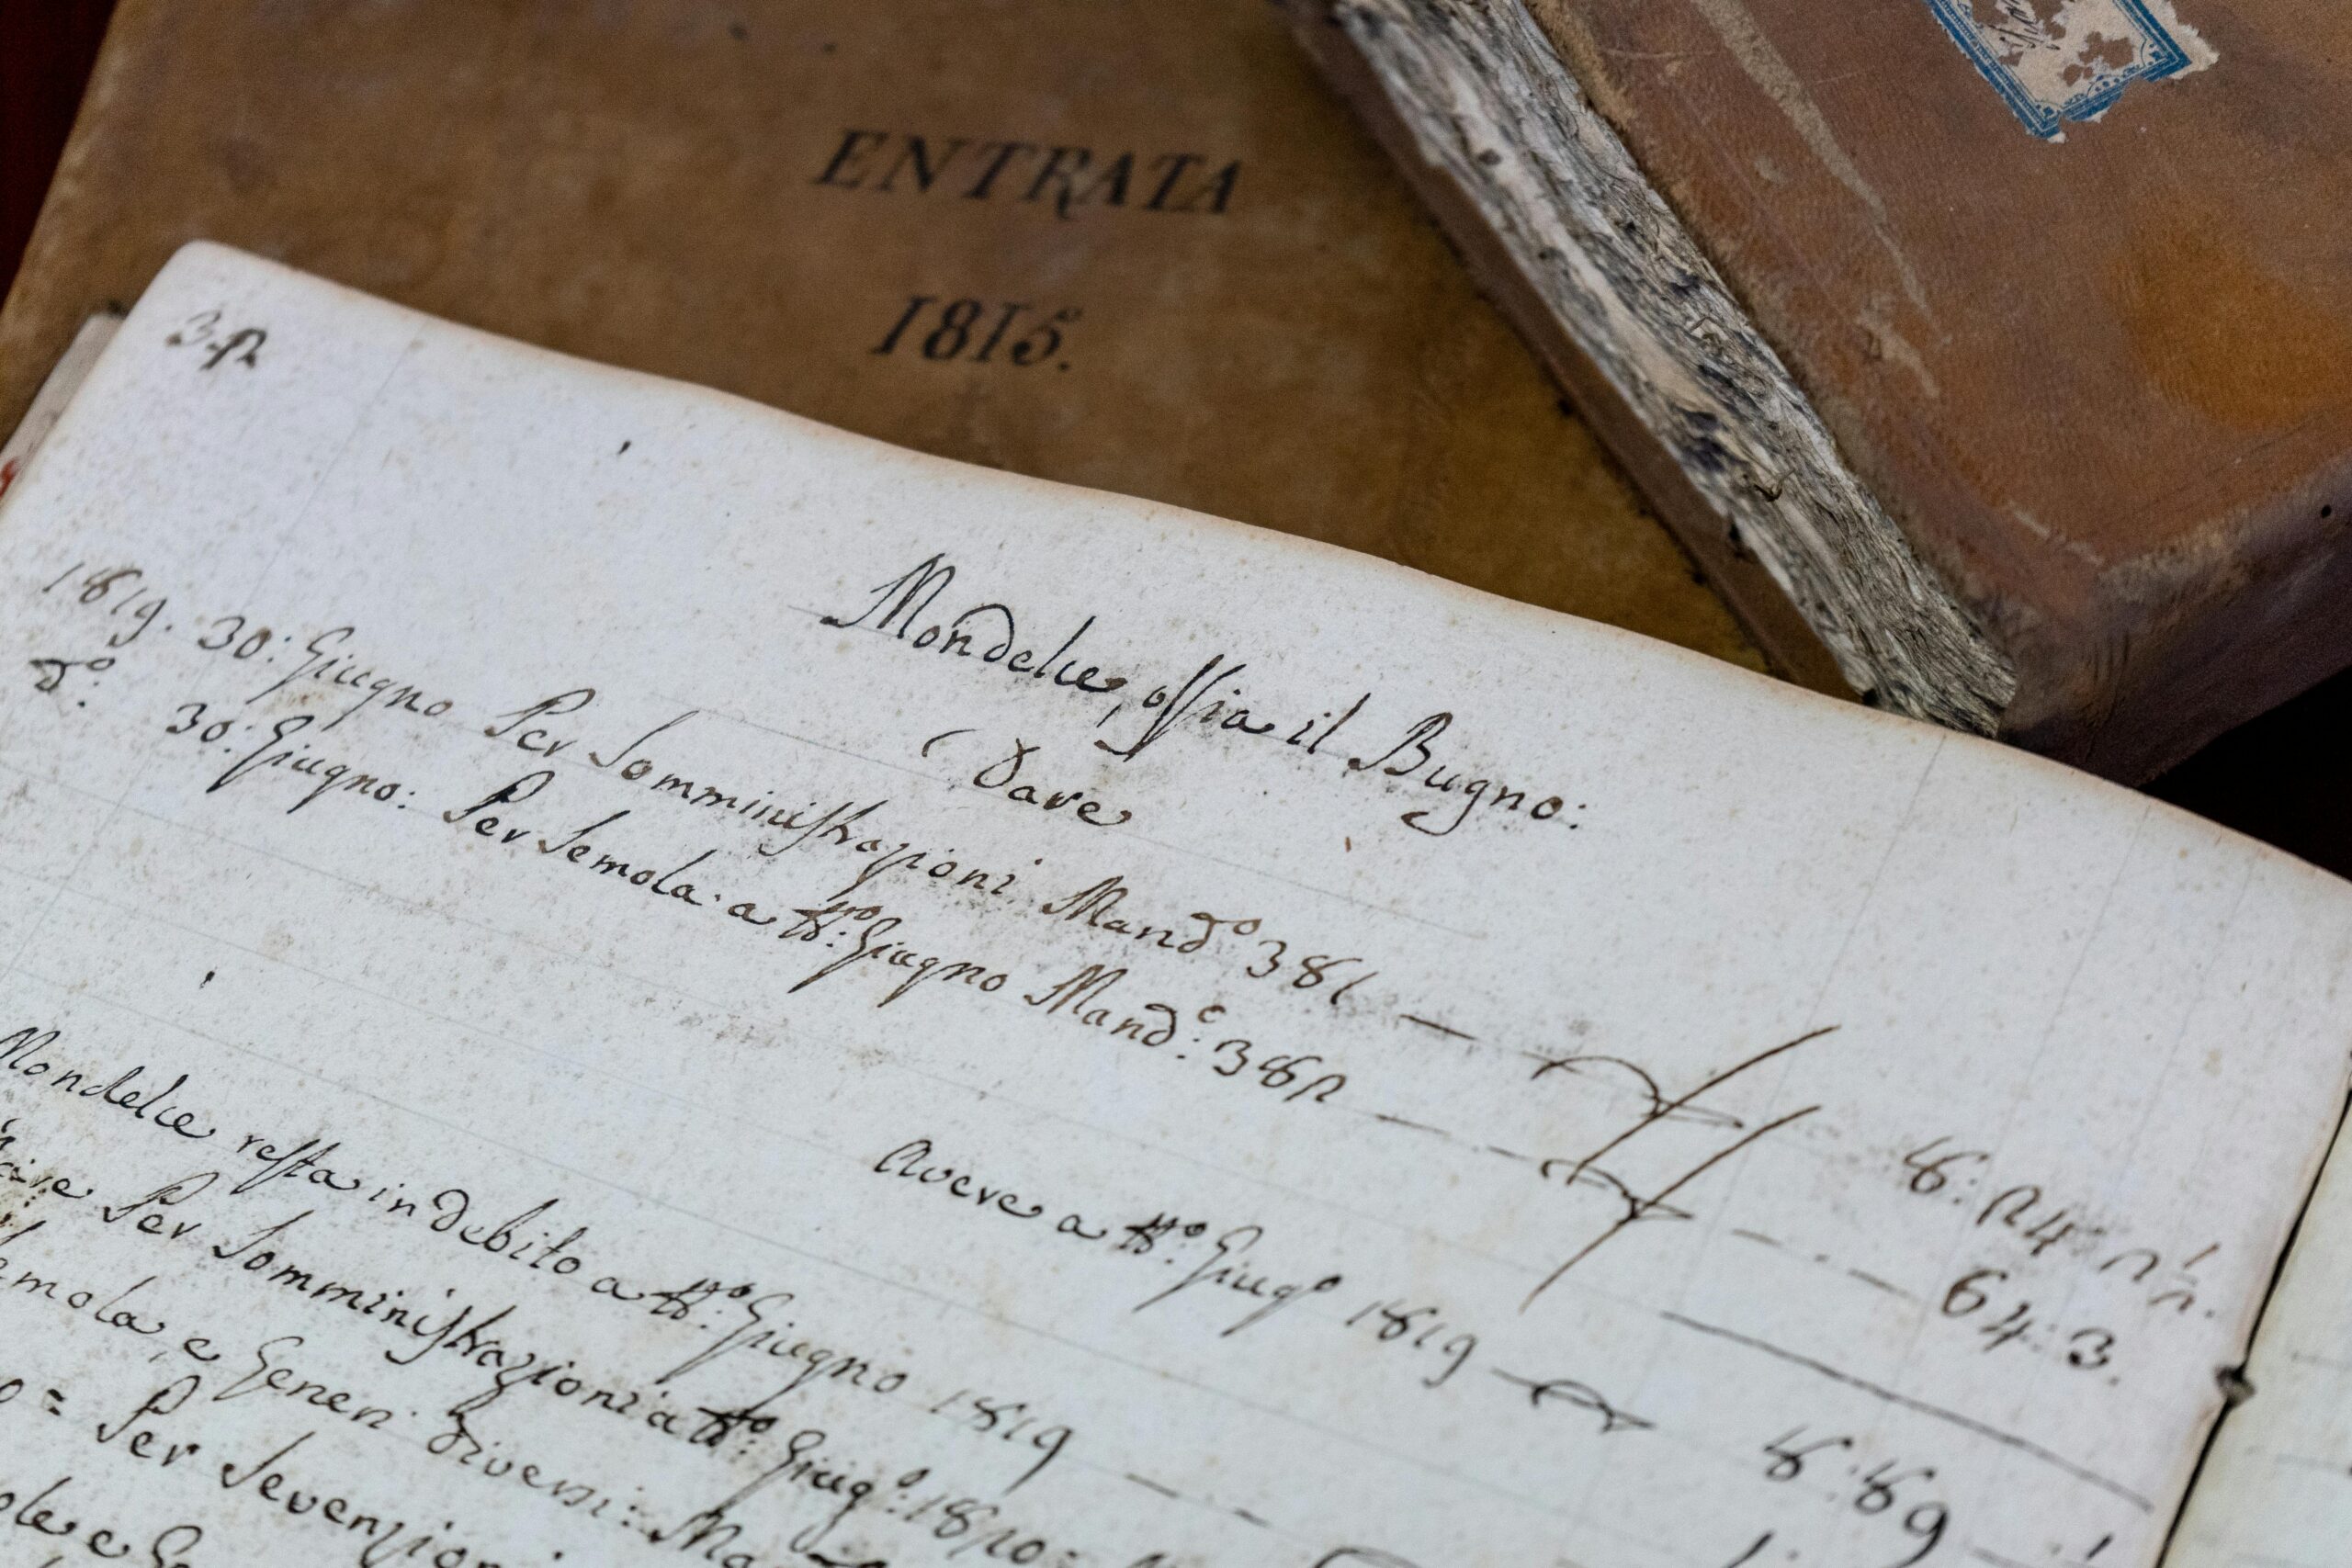 ENTRATA
1815.
32
Mondelce, ossia il Bugno:
Dare
1819. 30: Giugno Per Somministrazioni Mandᵒ 381 — 8: 24
dᵒ: 30: Giugno: Per Semola a tt.ᵒ: Giugno Mandᵒ: 382 — 64: 3.
Avere a tt.ᵒ: Giugᵒ 1819 8:89
Mondelce resta in debito a tt.ᵒ: Giugno 1819 —
Per Somministrazioni a tt.ᵒ: Giugᵒ: 1820
e Generi diversi:
= Per